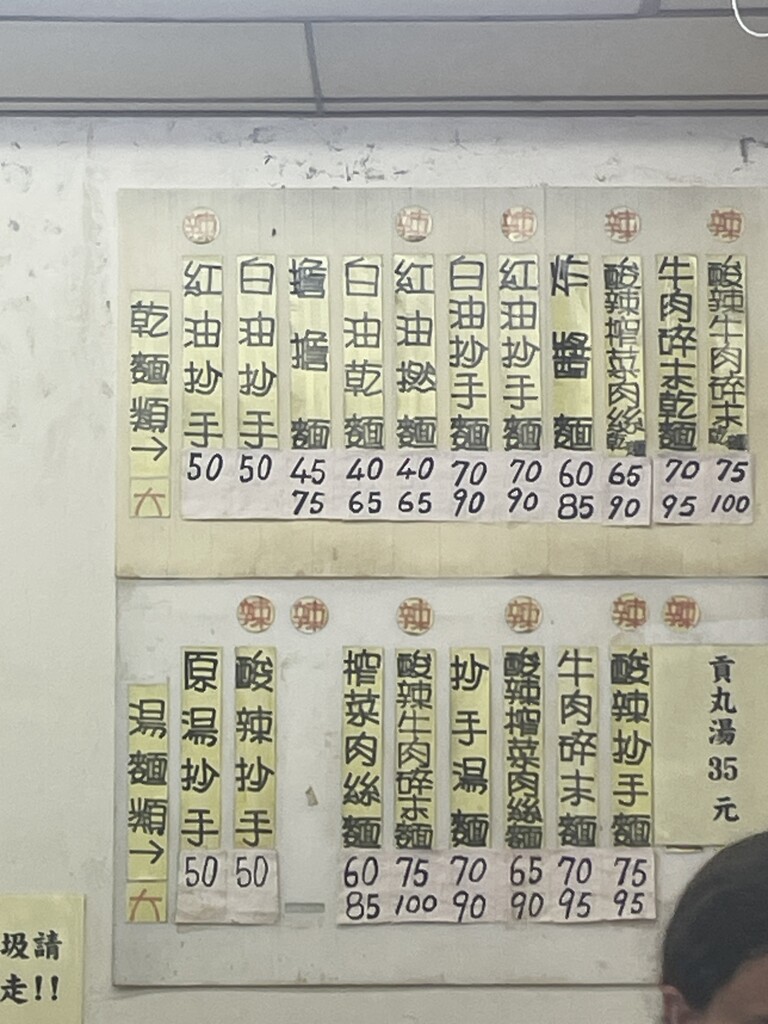 乾麵類→
大
辣
紅油抄手
50
白油抄手
50
擔擔麵
45
75
白油乾麵
40
65
辣
紅油撚麵
40
65
白油抄手麵
70
90
辣
紅油抄手麵
70
90
炸醬麵
60
85
辣
酸辣搾菜肉絲乾麵
65
90
牛肉碎末乾麵
70
95
辣
酸辣牛肉碎末乾麵
75
100
湯麵類→
大
原湯抄手
50
辣
酸辣抄手
50
辣
搾菜肉絲麵
60
85
辣
酸辣牛肉碎末麵
75
100
抄手湯麵
70
90
辣
酸辣搾菜肉絲麵
65
90
牛肉碎末麵
70
95
辣
酸辣抄手麵
75
95
辣
貢丸湯35元
圾請
走!!